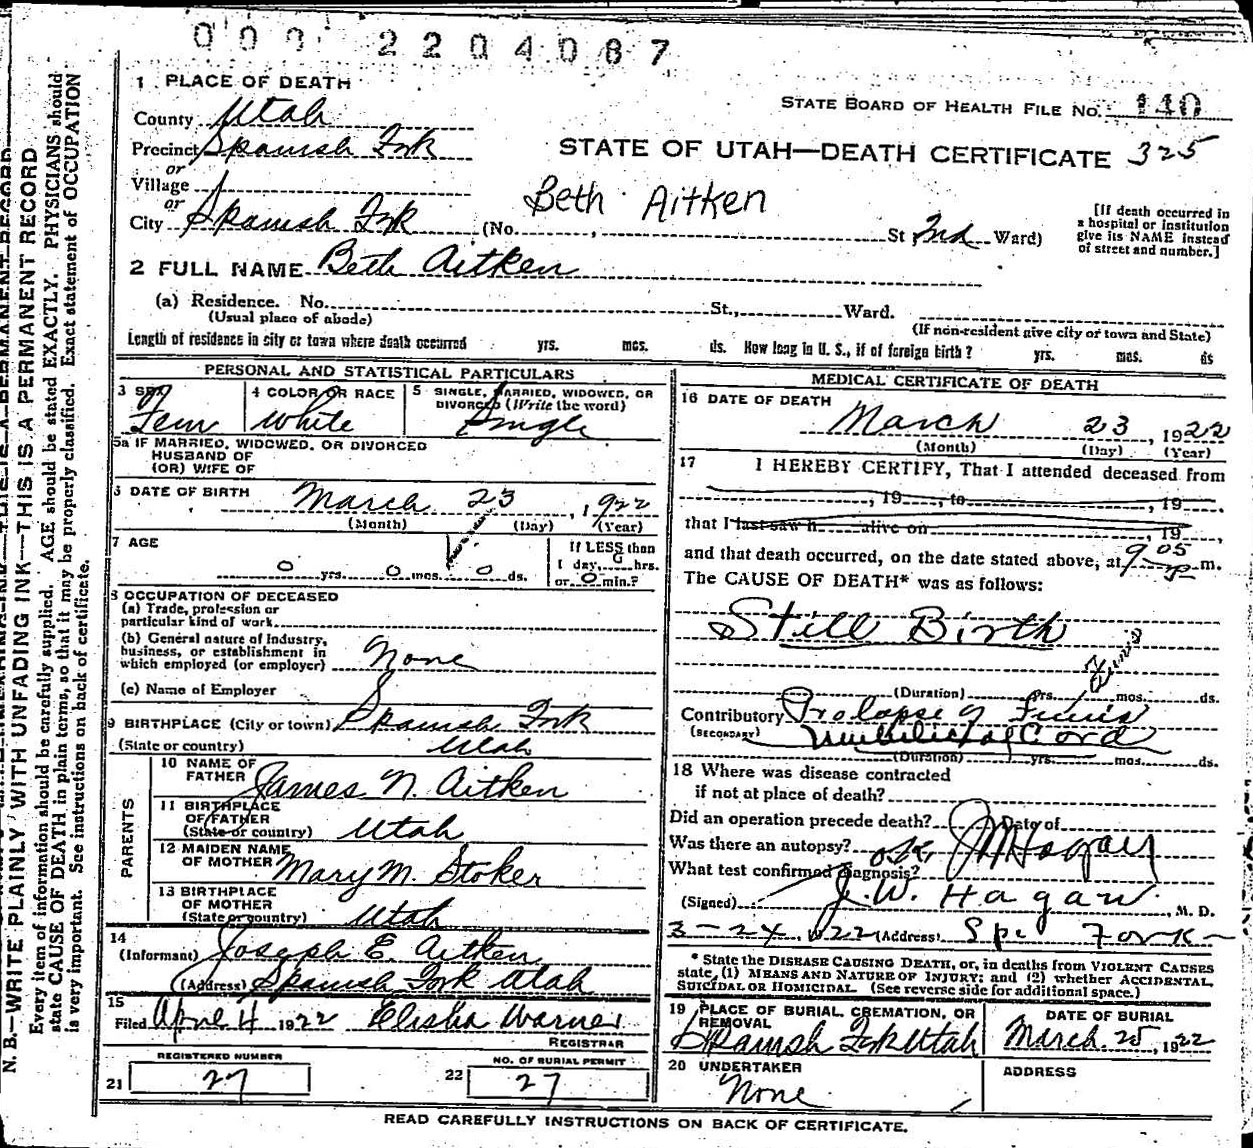 000 2204087
1 PLACE OF DEATH
STATE BOARD OF HEALTH FILE NO. 140
County Utah
Precinct Spanish Fork
STATE OF UTAH—DEATH CERTIFICATE 325
or
Village
or
Beth Aitken
City Spanish Fork (No. St 2nd Ward)
[If death occurred in
a hospital or institution
give its NAME instead
of street and number.]
2 FULL NAME Beth Aitken
(a) Residence. No. St., Ward.
(Usual place of abode) (If non-resident give city or town and State)
Length of residence in city or town where death occurred yrs. mos. ds. How long in U. S., if of foreign birth? yrs. mos. ds
PERSONAL AND STATISTICAL PARTICULARS
3 SEX Fem
4 COLOR OR RACE White
5 SINGLE, MARRIED, WIDOWED, OR
DIVORCED (Write the word)
Single
5a IF MARRIED, WIDOWED, OR DIVORCED
HUSBAND OF
(OR) WIFE OF
6 DATE OF BIRTH March 23, 1922
(Month) (Day) (Year)
7 AGE
0 yrs. 0 mos. 0 ds.
If LESS than
1 day, 0 hrs.
or 0 min.?
8 OCCUPATION OF DECEASED
(a) Trade, profession or
particular kind of work
(b) General nature of Industry,
business, or establishment in
which employed (or employer) None
(c) Name of Employer
9 BIRTHPLACE (City or town) Spanish Fork
(State or country) Utah
PARENTS
10 NAME OF
FATHER James N. Aitken
11 BIRTHPLACE
OF FATHER
(State or country) Utah
12 MAIDEN NAME
OF MOTHER Mary M. Stoker
13 BIRTHPLACE
OF MOTHER
(State or country) Utah
14
(Informant) Joseph E. Aitken
(Address) Spanish Fork Utah
15
Filed April 4 1922 Elisha Warner
REGISTRAR
REGISTERED NUMBER
21 27
NO. OF BURIAL PERMIT
22 27
MEDICAL CERTIFICATE OF DEATH
16 DATE OF DEATH
March 23, 1922
(Month) (Day) (Year)
17 I HEREBY CERTIFY, That I attended deceased from
, 19 , to , 19
that I last saw h alive on , 19 ,
and that death occurred, on the date stated above, at 9 05 p m.
The CAUSE OF DEATH* was as follows:
Still Birth
(Duration) yrs. mos. ds.
Contributory Prolapse of Funis
(SECONDARY) Umbilical Cord
(Duration) yrs. mos. ds.
18 Where was disease contracted
if not at place of death?
Did an operation precede death? Date of
Was there an autopsy?
What test confirmed diagnosis? OK JM Hagan
(Signed) J. W. Hagan, M. D.
3-24, 1922 (Address) Sp Fork
* State the DISEASE CAUSING DEATH, or, in deaths from VIOLENT CAUSES
state, (1) MEANS AND NATURE OF INJURY; and (2) whether ACCIDENTAL,
SUICIDAL OR HOMICIDAL. (See reverse side for additional space.)
19 PLACE OF BURIAL, CREMATION, OR
REMOVAL
Spanish Fork Utah
DATE OF BURIAL
March 25, 1922
20 UNDERTAKER
None
ADDRESS
READ CAREFULLY INSTRUCTIONS ON BACK OF CERTIFICATE.
N. B.—WRITE PLAINLY WITH UNFADING INK—THIS IS A PERMANENT RECORD
Every item of information should be carefully supplied. AGE should be stated EXACTLY. PHYSICIANS should
state CAUSE OF DEATH in plain terms, so that it may be properly classified. Exact statement of OCCUPATION
is very important. See instructions on back of certificate.